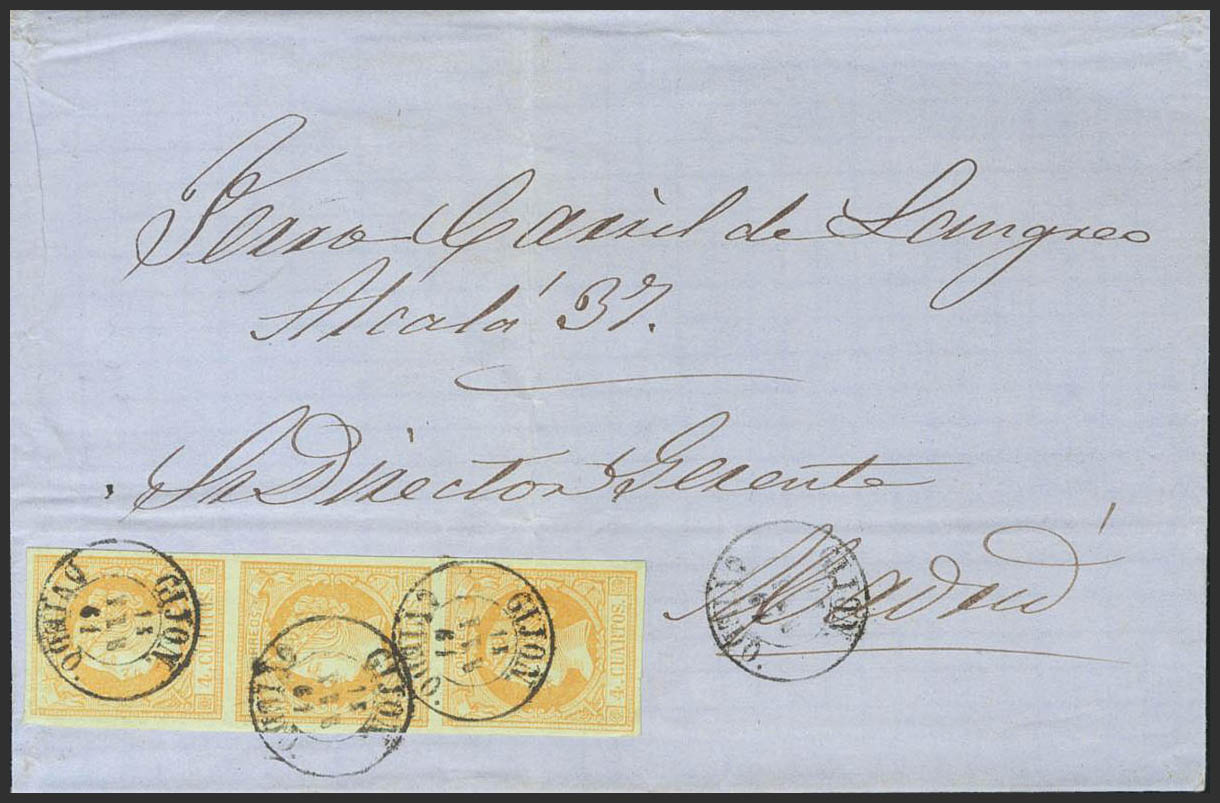 Ferro Carril de Langreo
Alcalá 37.
Sr Director Gerente
Madrid
GIJON 15 ENE 61 OVIEDO.
4. CU
GIJON 15 ENE 61 OVIEDO.
GIJON 15 ENE 61 OVIEDO.
4. CUARTOS.
GIJON OVIEDO.